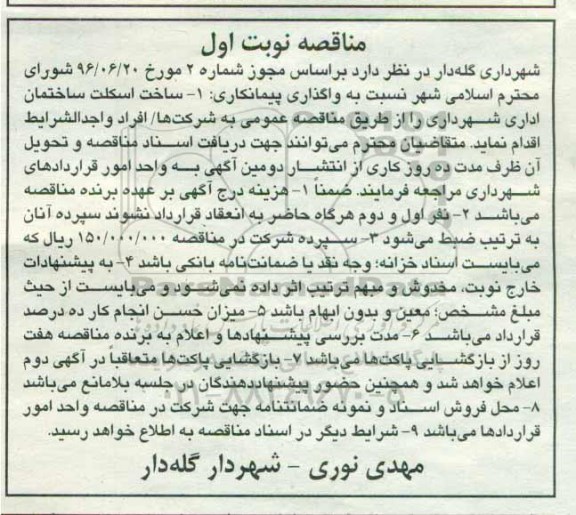 مناقصه نوبت اول
شهرداری گله‌دار در نظر دارد براساس مجوز شماره ۲ مورخ ۹۶/۰۶/۲۰ شورای
محترم اسلامی شهر نسبت به واگذاری پیمانکاری: ۱- ساخت اسکلت ساختمان
اداری شهرداری را از طریق مناقصه عمومی به شرکت‌ها/ افراد واجدالشرایط
اقدام نماید. متقاضیان محترم می‌توانند جهت دریافت اسناد مناقصه و تحویل
آن ظرف مدت ده روز کاری از انتشار دومین آگهی به واحد امور قراردادهای
شهرداری مراجعه فرمایند. ضمناً ۱- هزینه درج آگهی بر عهده برنده مناقصه
می‌باشد ۲- نفر اول و دوم هرگاه حاضر به انعقاد قرارداد نشوند سپرده آنان
به ترتیب ضبط می‌شود ۳- سپرده شرکت در مناقصه ۱۵۰/۰۰۰/۰۰۰ ریال که
می‌بایست اسناد خزانه؛ وجه نقد یا ضمانت‌نامه بانکی باشد ۴- به پیشنهادات
خارج نوبت، مخدوش و مبهم ترتیب اثر داده نمی‌شود و می‌بایست از حیث
مبلغ مشخص؛ معین و بدون ابهام باشد ۵- میزان حسن انجام کار ده درصد
قرارداد می‌باشد ۶- مدت بررسی پیشنهادها و اعلام به برنده مناقصه هفت
روز از بازگشایی پاکت‌ها می‌باشد ۷- بازگشایی پاکت‌ها متعاقباً در آگهی دوم
اعلام خواهد شد و همچنین حضور پیشنهاددهندگان در جلسه بلامانع می‌باشد
۸- محل فروش اسناد و نمونه ضمانتنامه جهت شرکت در مناقصه واحد امور
قراردادها می‌باشد ۹- شرایط دیگر در اسناد مناقصه به اطلاع خواهد رسید.
مهدی نوری - شهردار گله‌دار